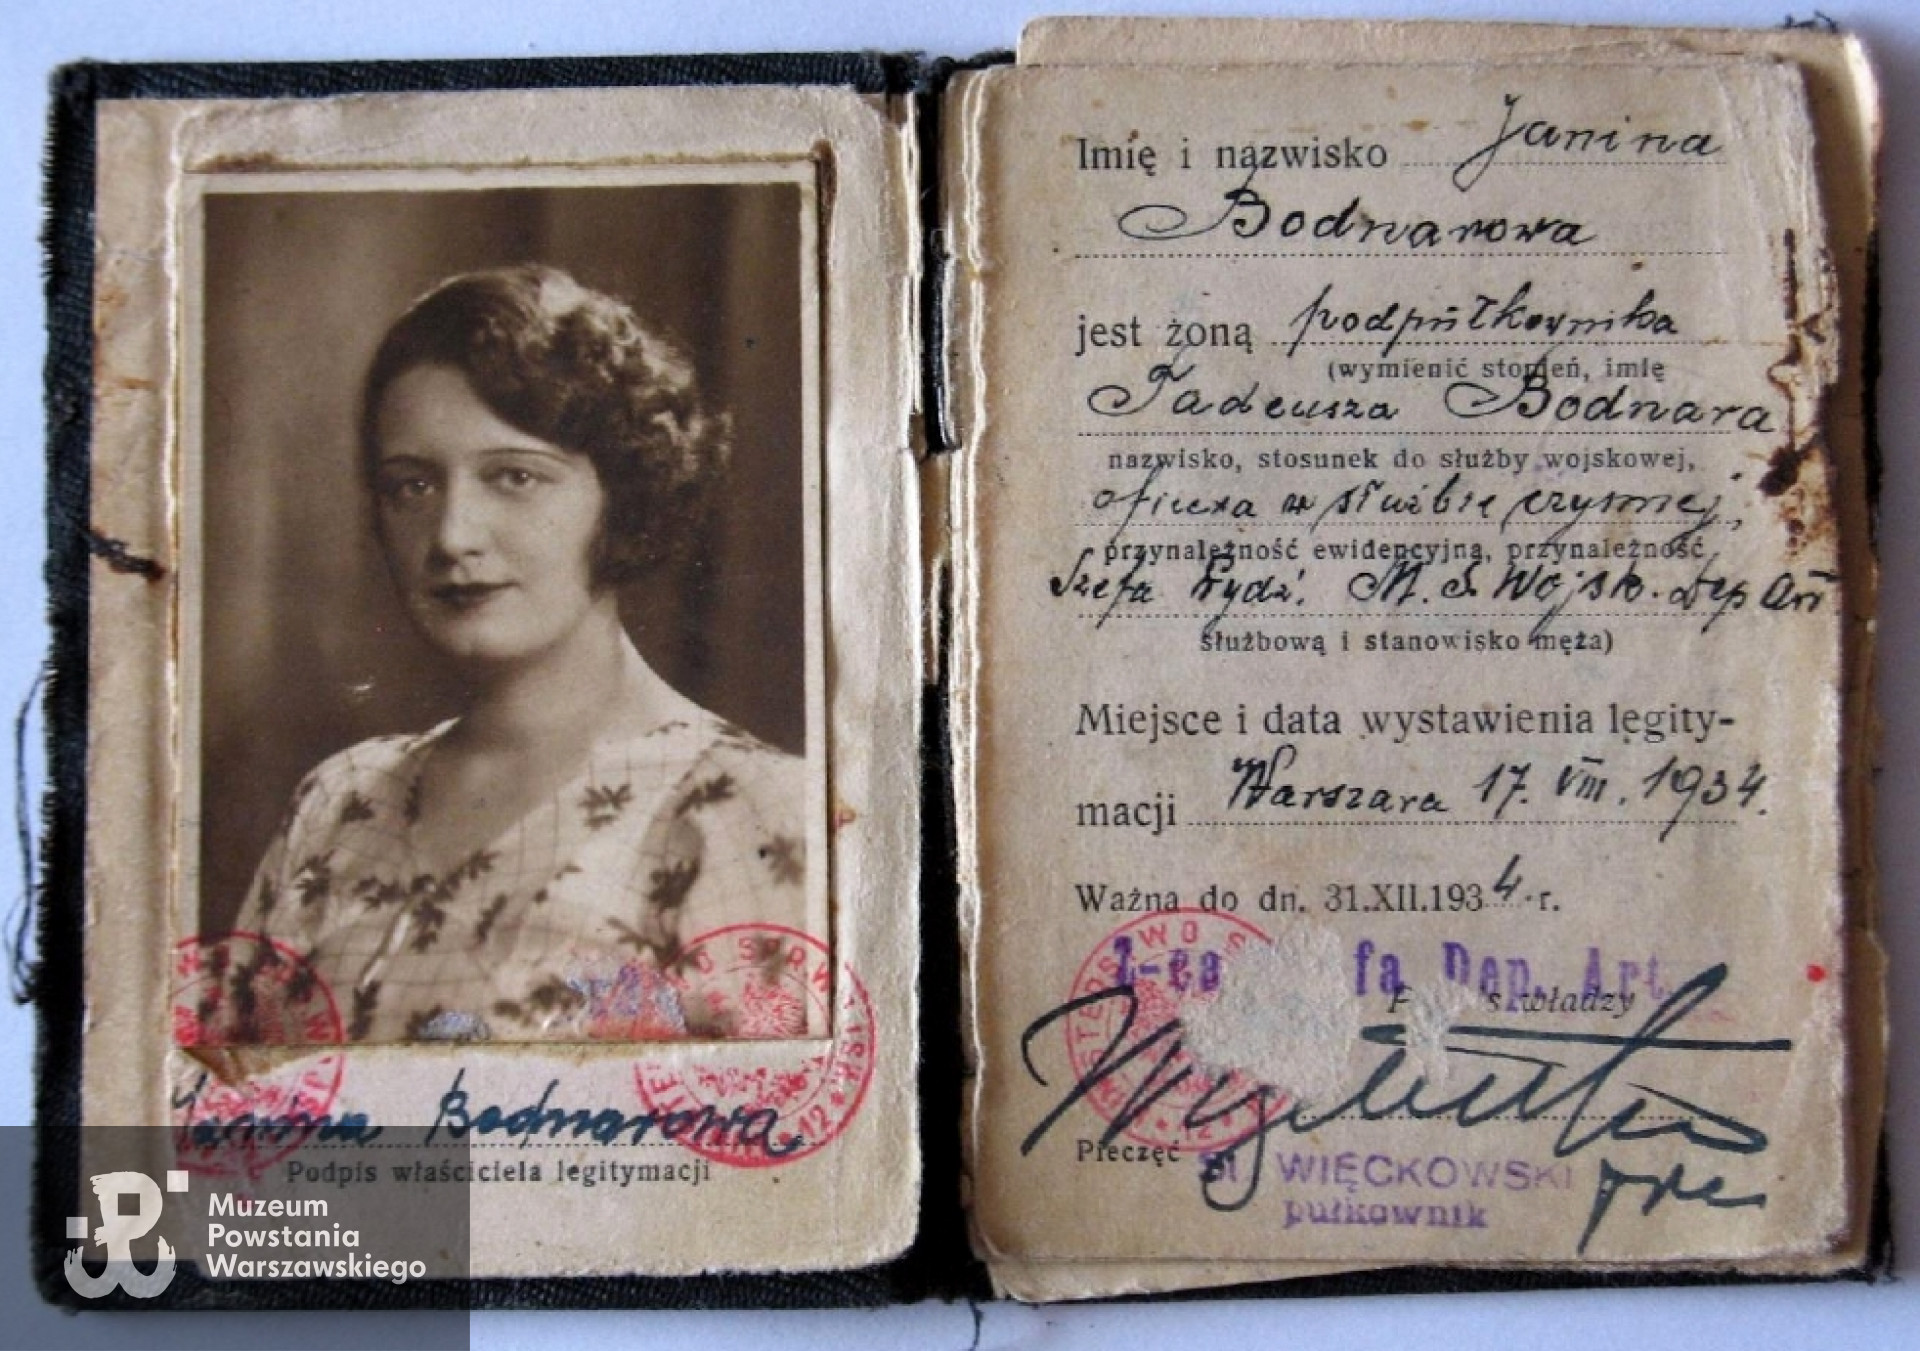 Janina Bodnarowa
Podpis właściciela legitymacji
Muzeum
Powstania
Warszawskiego
Imię i nazwisko Janina
Bodnarowa
jest żoną podpułkownika
(wymienić stopień, imię
Tadeusza Bodnara
nazwisko, stosunek do służby wojskowej,
oficera w służbie czynnej,
przynależność ewidencyjną, przynależność
Szefa Wydz. M. S. Wojsk. Dep Art
służbową i stanowisko męża)
Miejsce i data wystawienia legity-
macji Warszawa 17. VIII. 1934.
Ważna do dn. 31.XII.1934. r.
Z-ca fa Dep. Art.
władzy
Pieczęć
St WIĘCKOWSKI
pułkownik